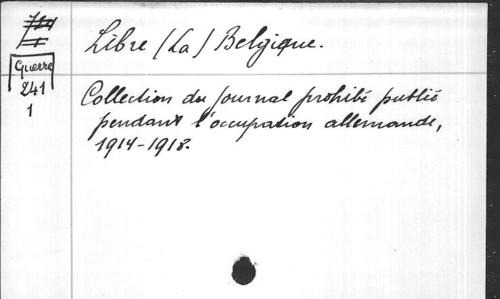 Libre (La) Belgique.
Guerre
241
1
Collection du journal prohibé publié
pendant l'occupation allemande,
1914-1918.